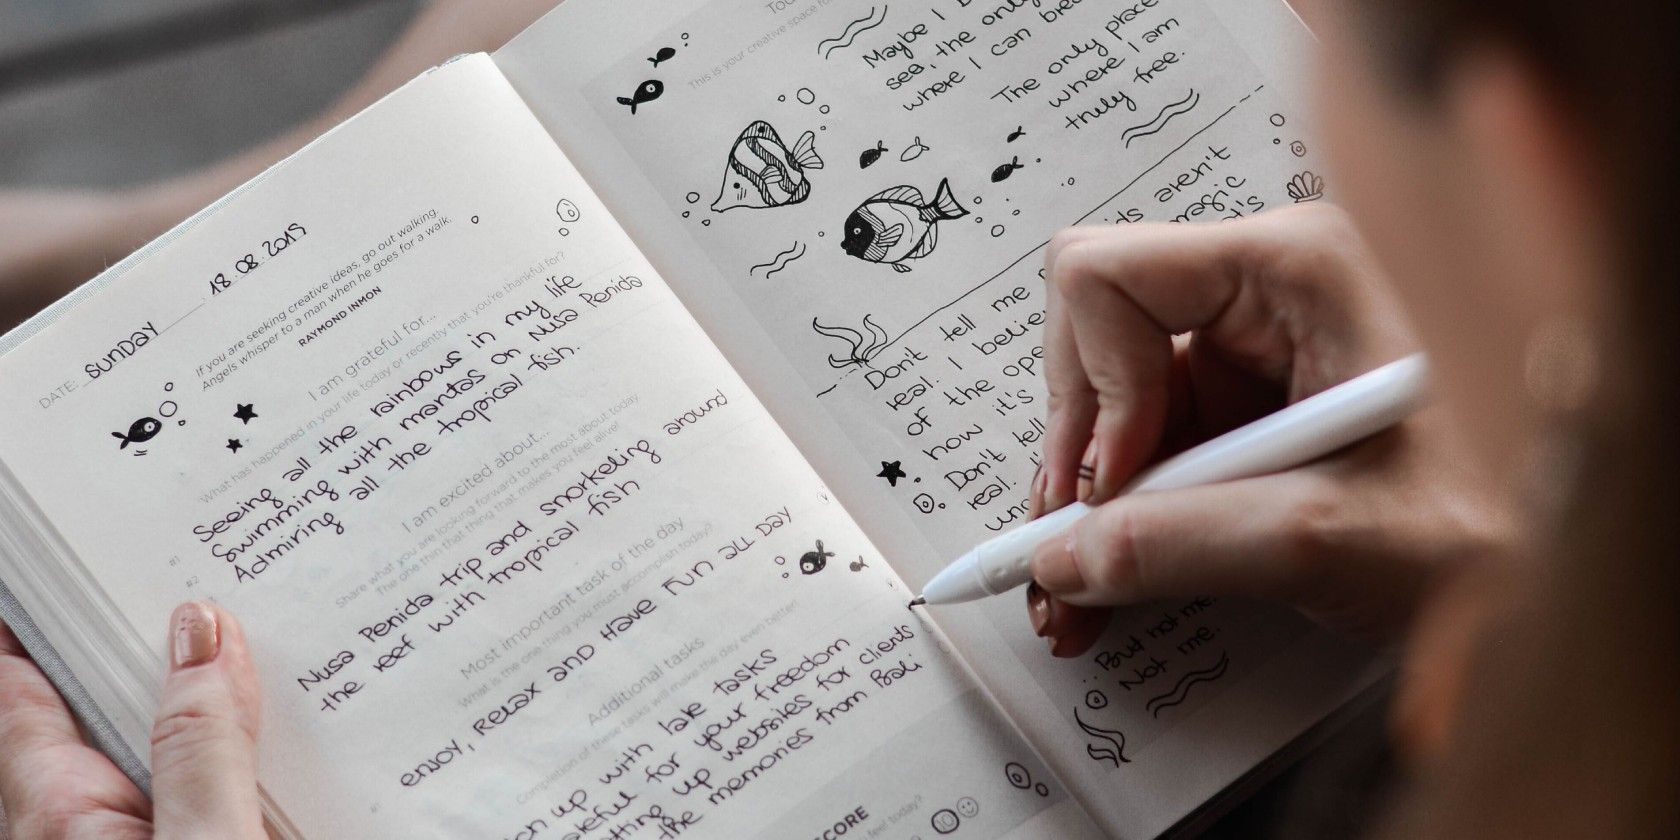 DATE: SUNDAY 18.08.2019
If you are seeking creative ideas, go out walking.
Angels whisper to a man when he goes for a walk.
RAYMOND INMON
I am grateful for...
What has happened in your life today or recently that you're thankful for?
Seeing all the rainbows in my life
Swimming with mantas on Nusa Penida
Admiring all the tropical fish.
#1
#2
I am excited about...
Share what you are looking forward to the most about today
The one thing that makes you feel alive!
Nusa Penida trip and snorkeling around
the reef with tropical fish
Most important task of the day
What is the one thing you must accomplish today?
ENJOY, RELAX AND HAVE FUN ALL DAY
Additional tasks
Completion of these tasks will make the day even better!
#1
up with late tasks
for your freedom
up websites for clients
the memories from Bali
SCORE
feel today?
10
This is your creative space for
Maybe I
sea, the only
where I can
The only place
where I am
truly free.
aren't
magic
it's
Don't tell me
real. I
of the
how it's
Don't tell
real.
But not me.
Not me.